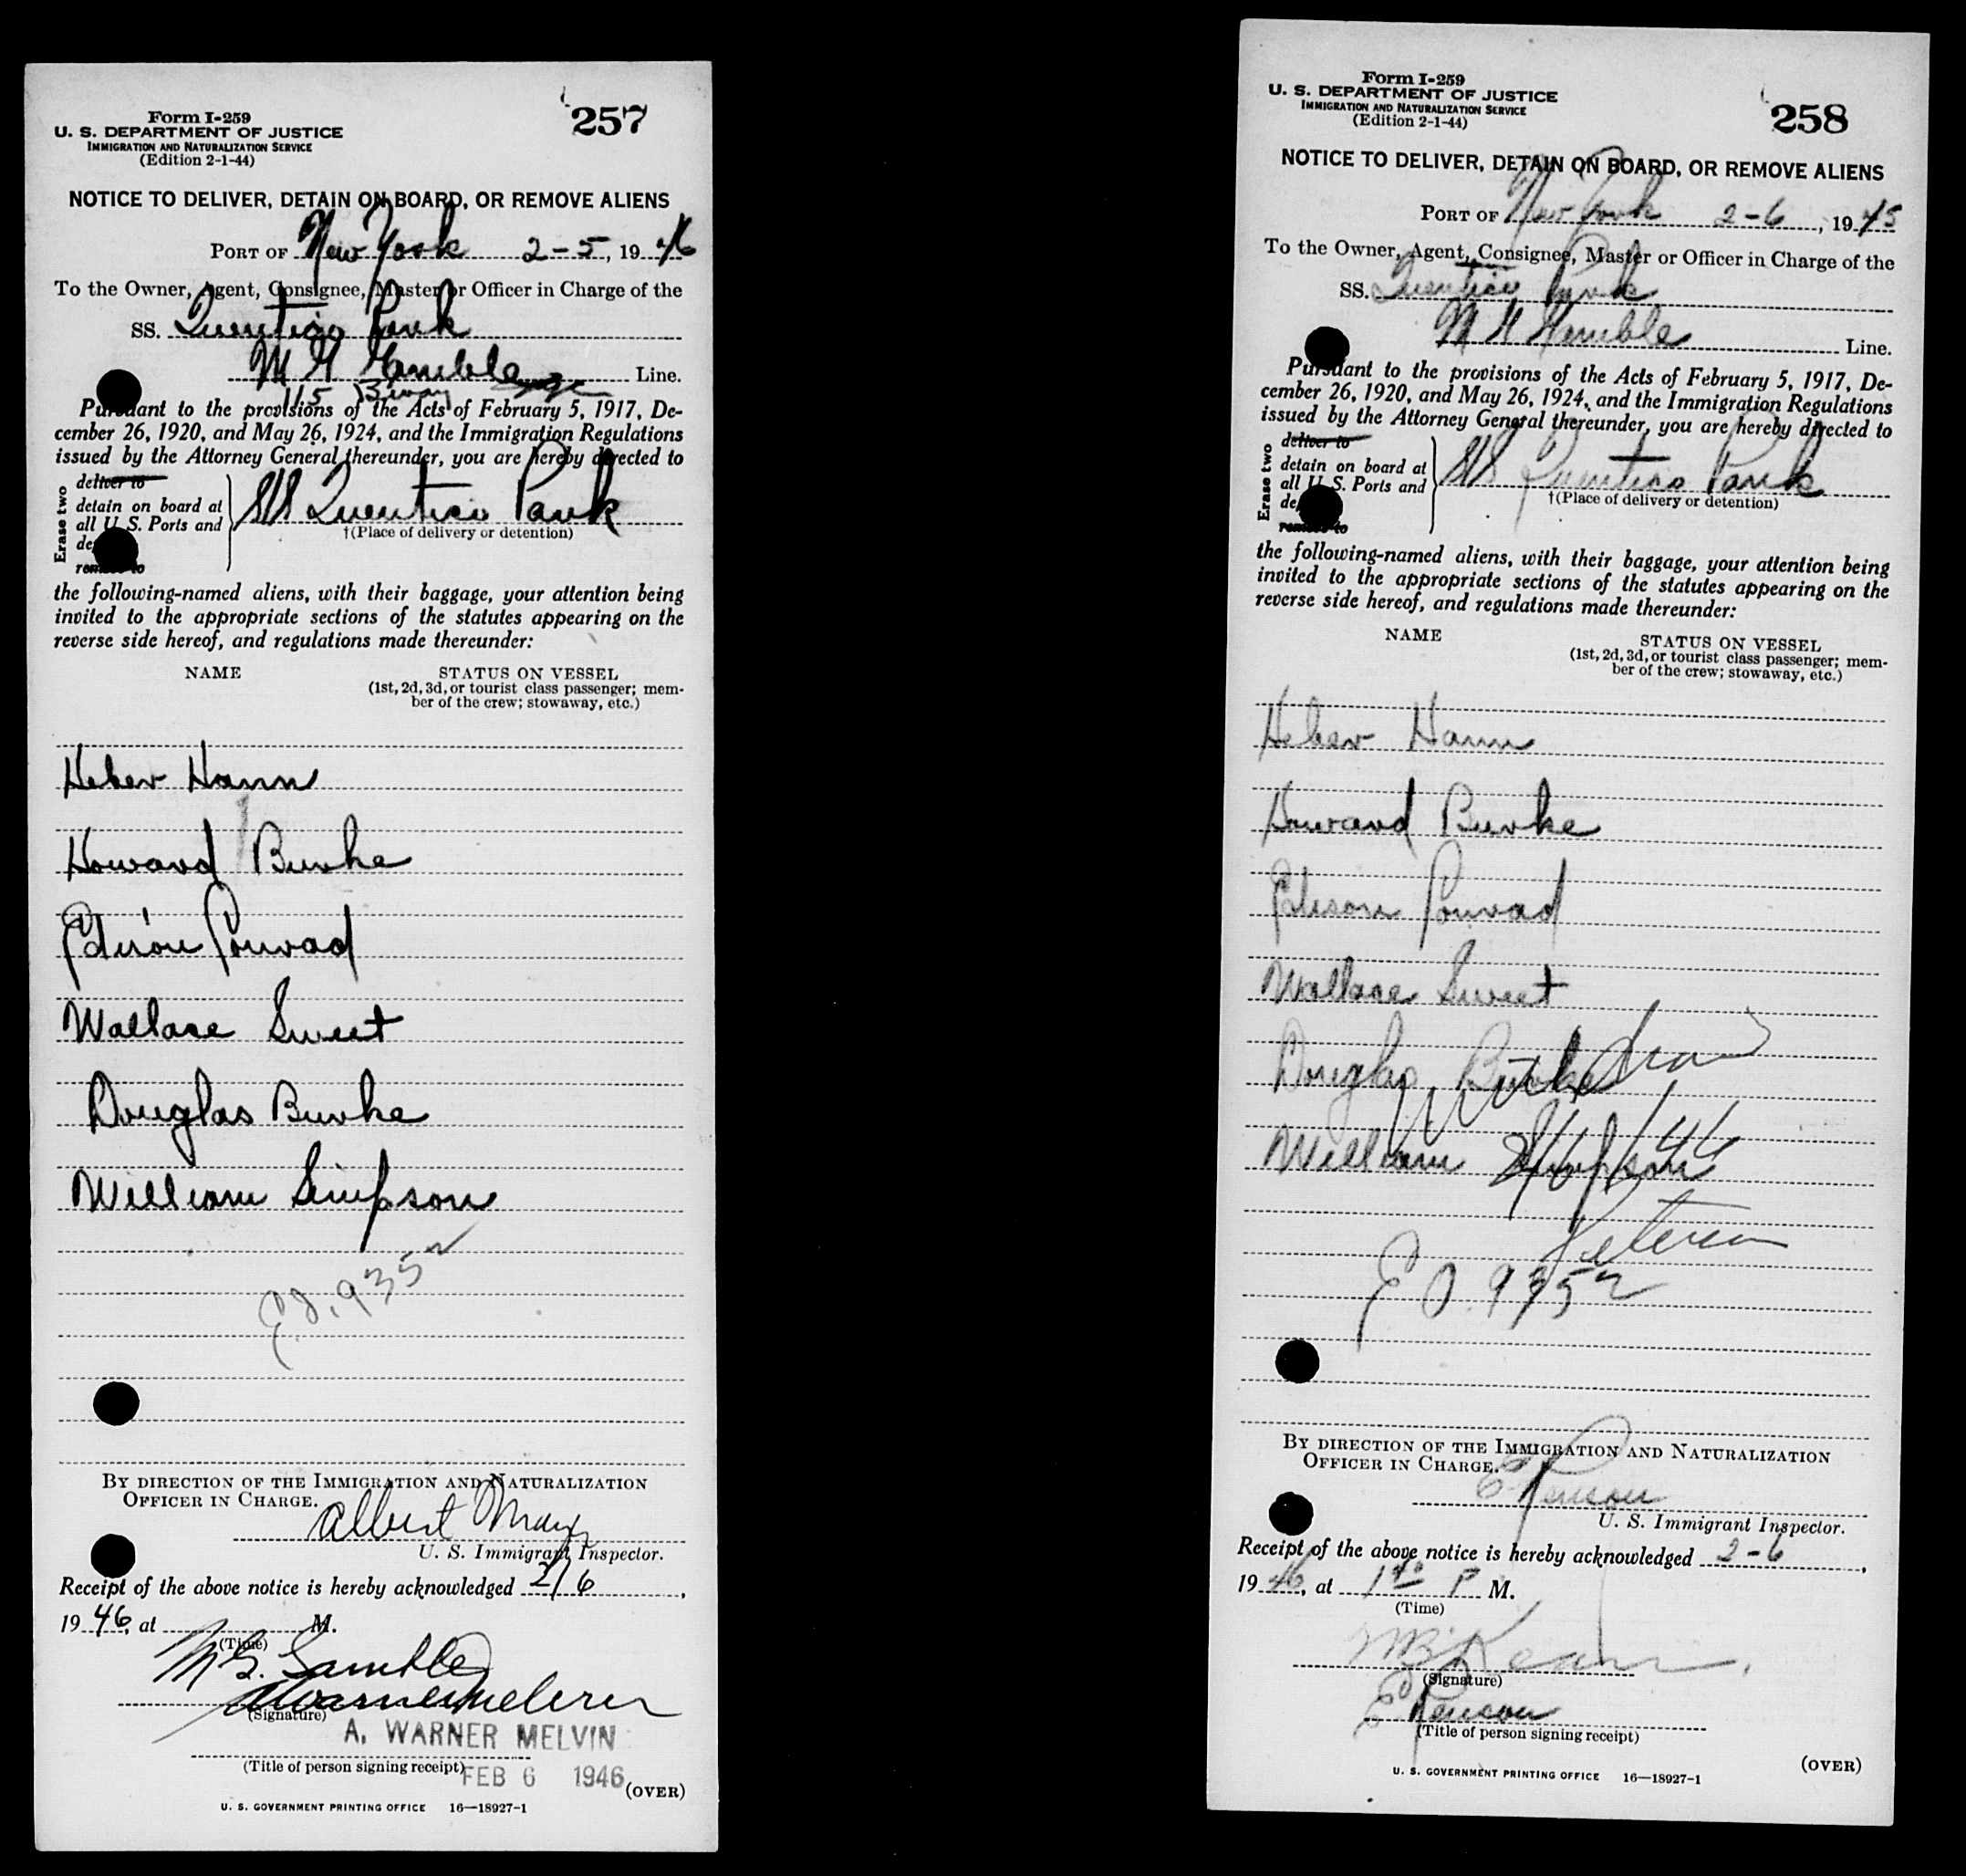 Form I-259
U. S. DEPARTMENT OF JUSTICE
IMMIGRATION AND NATURALIZATION SERVICE
(Edition 2-1-44)
257
NOTICE TO DELIVER, DETAIN ON BOARD, OR REMOVE ALIENS
PORT OF New York 2-5, 1946
To the Owner, Agent, Consignee, Master or Officer in Charge of the
SS. Quentico Park
M G Gamble Line.
115 Bway
Pursuant to the provisions of the Acts of February 5, 1917, De-
cember 26, 1920, and May 26, 1924, and the Immigration Regulations
issued by the Attorney General thereunder, you are hereby directed to
Erase two
deliver to
detain on board at
all U. S. Ports and
de
remove to
S/S Quentico Park
†(Place of delivery or detention)
the following-named aliens, with their baggage, your attention being
invited to the appropriate sections of the statutes appearing on the
reverse side hereof, and regulations made thereunder:
NAME STATUS ON VESSEL
(1st, 2d, 3d, or tourist class passenger; mem-
ber of the crew; stowaway, etc.)
Heber Hann
Howard Burke
Edison Conrad
Wallace Sweet
Douglas Burke
William Simpson
E.O. 9352
BY DIRECTION OF THE IMMIGRATION AND NATURALIZATION
OFFICER IN CHARGE.
Albert
U. S. Immigrant Inspector.
Receipt of the above notice is hereby acknowledged 2/6,
1946, at M.
(Time)
M. G. Gamble
A Warner Melvin
(Signature)
A. WARNER MELVIN
(Title of person signing receipt)
FEB 6 1946
(OVER)
U. S. GOVERNMENT PRINTING OFFICE 16—18927-1
Form I-259
U. S. DEPARTMENT OF JUSTICE
IMMIGRATION AND NATURALIZATION SERVICE
(Edition 2-1-44)
258
NOTICE TO DELIVER, DETAIN ON BOARD, OR REMOVE ALIENS
PORT OF New York 2-6, 1945
To the Owner, Agent, Consignee, Master or Officer in Charge of the
SS. Quentico Park
M G Gamble Line.
Pursuant to the provisions of the Acts of February 5, 1917, De-
cember 26, 1920, and May 26, 1924, and the Immigration Regulations
issued by the Attorney General thereunder, you are hereby directed to
Erase two
deliver to
detain on board at
all U. S. Ports and
de
remove to
S/S Quentico Park
†(Place of delivery or detention)
the following-named aliens, with their baggage, your attention being
invited to the appropriate sections of the statutes appearing on the
reverse side hereof, and regulations made thereunder:
NAME STATUS ON VESSEL
(1st, 2d, 3d, or tourist class passenger; mem-
ber of the crew; stowaway, etc.)
Heber Hann
Howard Burke
Edison Conrad
Wallace Sweet
Douglas Burke
William Simpson
2/6/46
E O. 9352
BY DIRECTION OF THE IMMIGRATION AND NATURALIZATION
OFFICER IN CHARGE.
U. S. Immigrant Inspector.
Receipt of the above notice is hereby acknowledged 2-6,
1946, at 1 40 P M.
(Time)
(Signature)
(Title of person signing receipt)
(OVER)
U. S. GOVERNMENT PRINTING OFFICE 16—18927-1